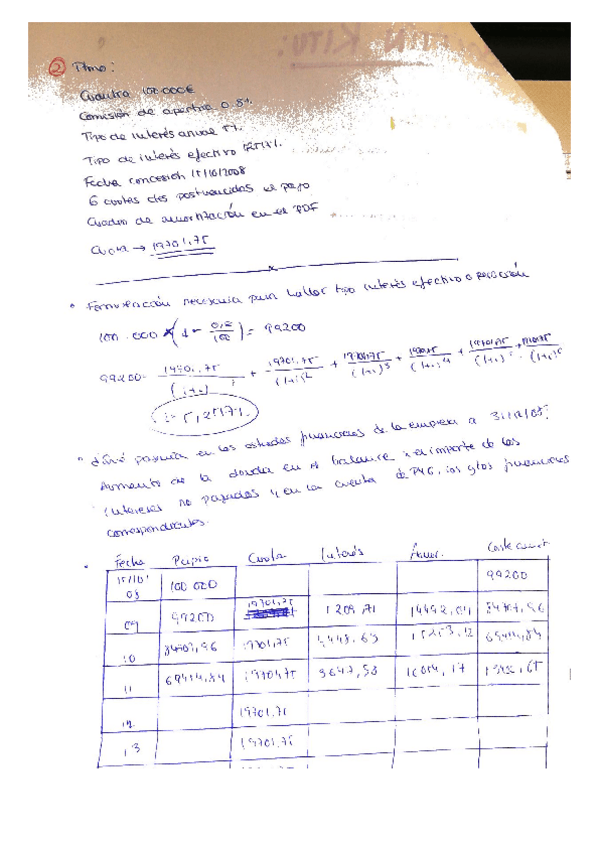 ② Ptmo:
Cuantía 100.000€
Comisión de apertura 0.8%
Tipo de interés anual 5%
Tipo de interés efectivo
Fecha concesión 15/10/2008
6 cuotas ctes postvencidas el pago
Cuadro de amortización en el PDF
Cuota → 19701,75
• Formulación necesaria para hallar tipo interés efectivo o
100.000 (1 -
) = 99200
99200 =
+ 19701,75 / (1+i)² + 19701,75 / (1+i)³ +
/ (1+i)⁴ +
i = 5,2517%
¿Qué pasaría en los estados financieros de la empresa a 31/12/08?
Aumento de la deuda en el balance x el importe de los
intereses no pagados y en la cuenta de PYG, los gtos financieros
correspondientes.
Fecha Cuota Interés Amor.
15/10/08 100 000 99200
09 99200 19701,75 14492,04
10 84707,96 19701,75 4448,63 69454,84
11 69454,84 19701,75 3647,58
12 19701,75
13 19701,75